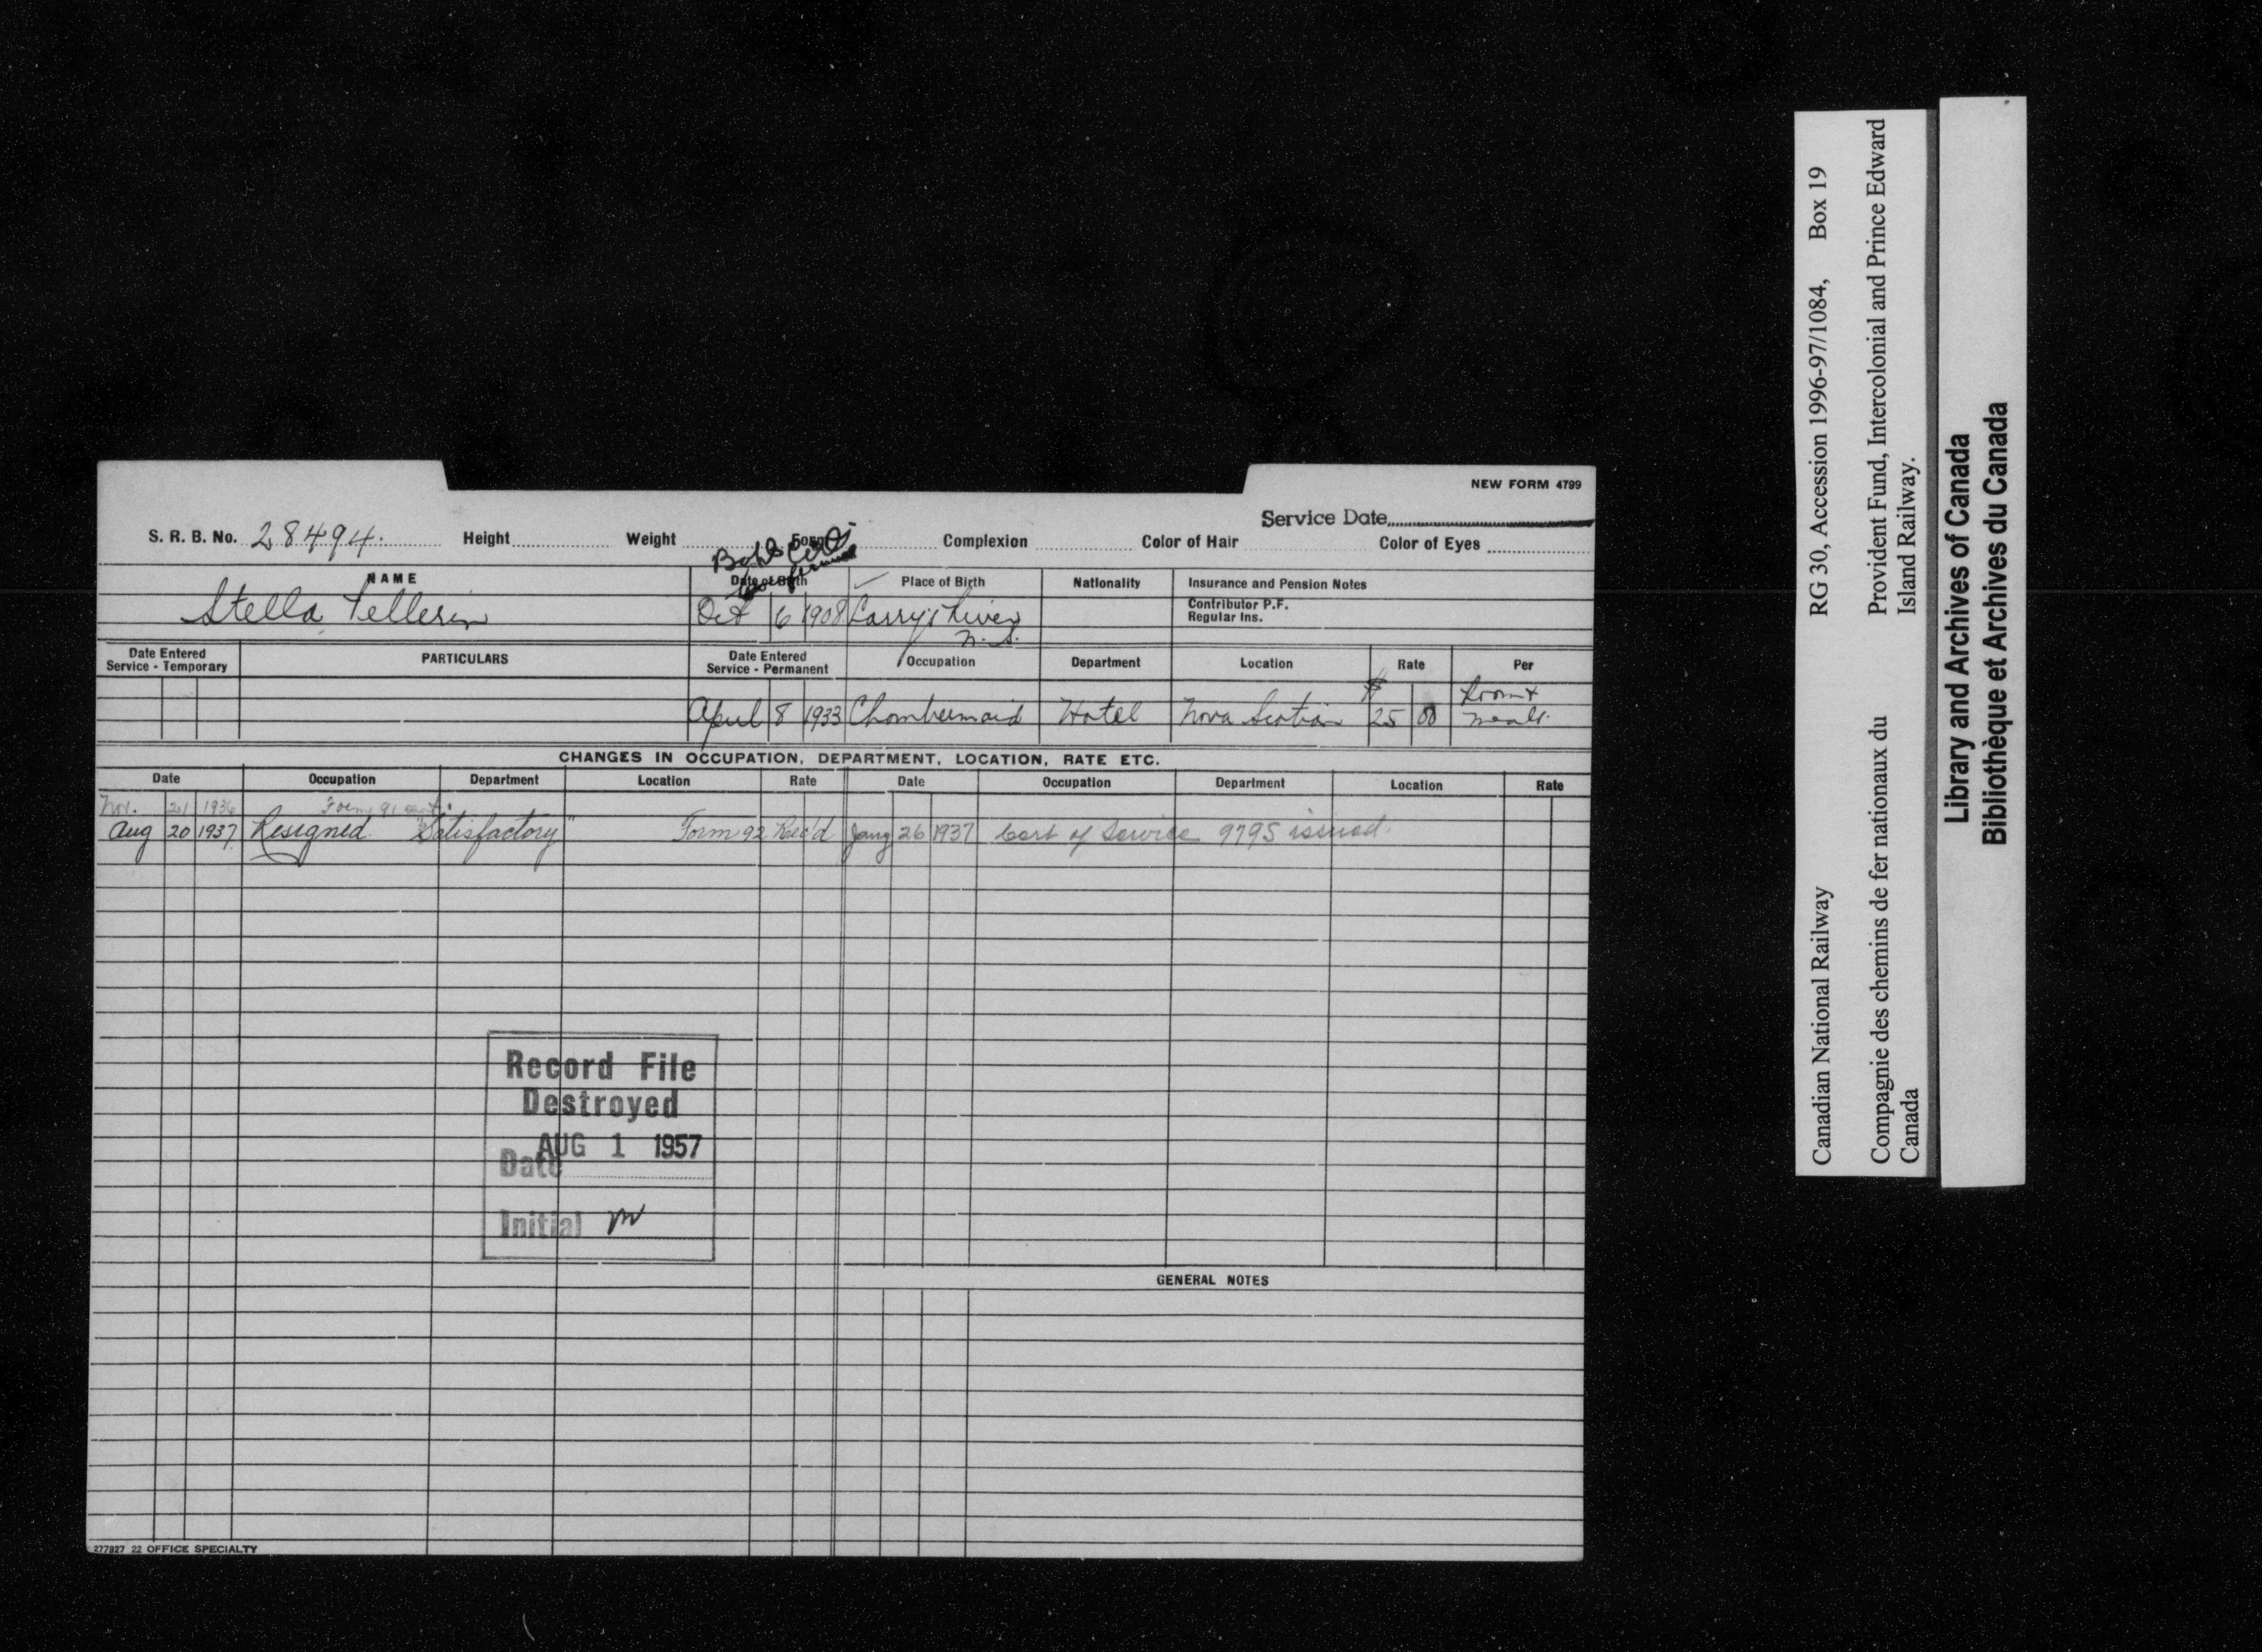 NEW FORM 4799
Service Date
S. R. B. No. 28494. Height Weight Form Complexion Color of Hair Color of Eyes
NAME Date of Birth Place of Birth Nationality Insurance and Pension Notes
Contributor P.F.
Stella Pellerin Oct 6 1908 Larry's River Regular Ins.
N.S.
Date Entered Service - Temporary PARTICULARS Date Entered Service - Permanent Occupation Department Location Rate Per
April 8 1933 Chambermaid Hotel Nova Scotian $ 25 00 Room & meals.
CHANGES IN OCCUPATION, DEPARTMENT, LOCATION, RATE ETC.
Date Occupation Department Location Rate Date Occupation Department Location Rate
21 1936 Form 91
Aug 20 1937 Resigned "Satisfactory" Form 92 Rec'd Jany 26 1937 Cert of Service 9795 issued.
Record File
Destroyed
AUG 1 1957
Date
Initial
GENERAL NOTES
277827 22 OFFICE SPECIALTY
Canadian National Railway RG 30, Accession 1996-97/1084, Box 19
Compagnie des chemins de fer nationaux du Provident Fund, Intercolonial and Prince Edward
Canada Island Railway.
Library and Archives of Canada
Bibliothèque et Archives du Canada